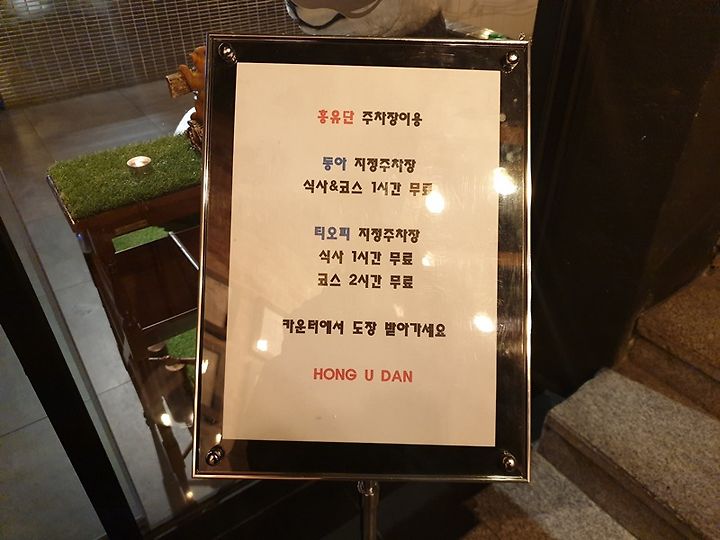 홍유단 주차장이용
동아 지정주차장
식사&코스 1시간 무료
티오피 지정주차장
식사 1시간 무료
코스 2시간 무료
카운터에서 도장 받아가세요
HONG U DAN